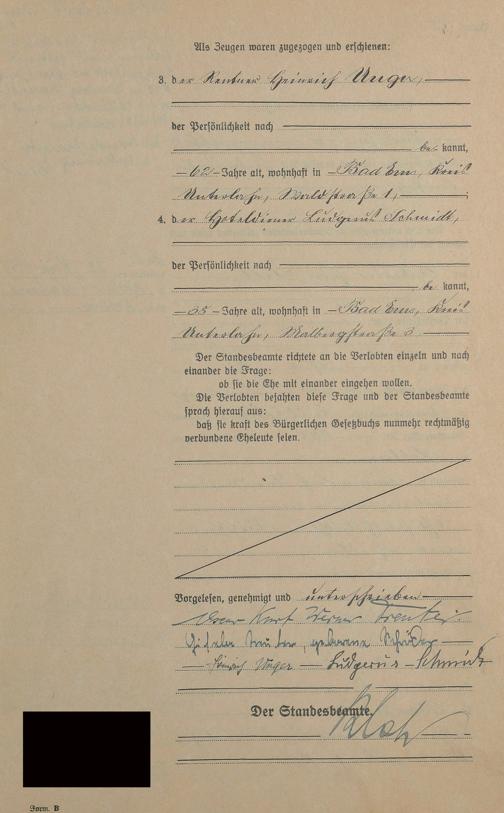 Als Zeugen waren zugezogen und erschienen:
3. der Rentner Heinrich Unger,
der Persönlichkeit nach
be kannt,
62 Jahre alt, wohnhaft in Bad Ems, Kreis
Unterlahn, Waldstraße 1,
4. der Hoteldiener Ludgerus Schmidt,
der Persönlichkeit nach
be kannt,
35 Jahre alt, wohnhaft in Bad Ems, Kreis
Unterlahn, Malbergstraße 3.
Der Standesbeamte richtete an die Verlobten einzeln und nach
einander die Frage:
ob sie die Ehe mit einander eingehen wollen.
Die Verlobten bejahten diese Frage und der Standesbeamte
sprach hierauf aus:
daß sie kraft des Bürgerlichen Gesetzbuchs nunmehr rechtmäßig
verbundene Eheleute seien.
Vorgelesen, genehmigt und unterschrieben
Karl Werner
geborene
Heinrich Unger Ludgerus Schmidt
Der Standesbeamte.
Form. B